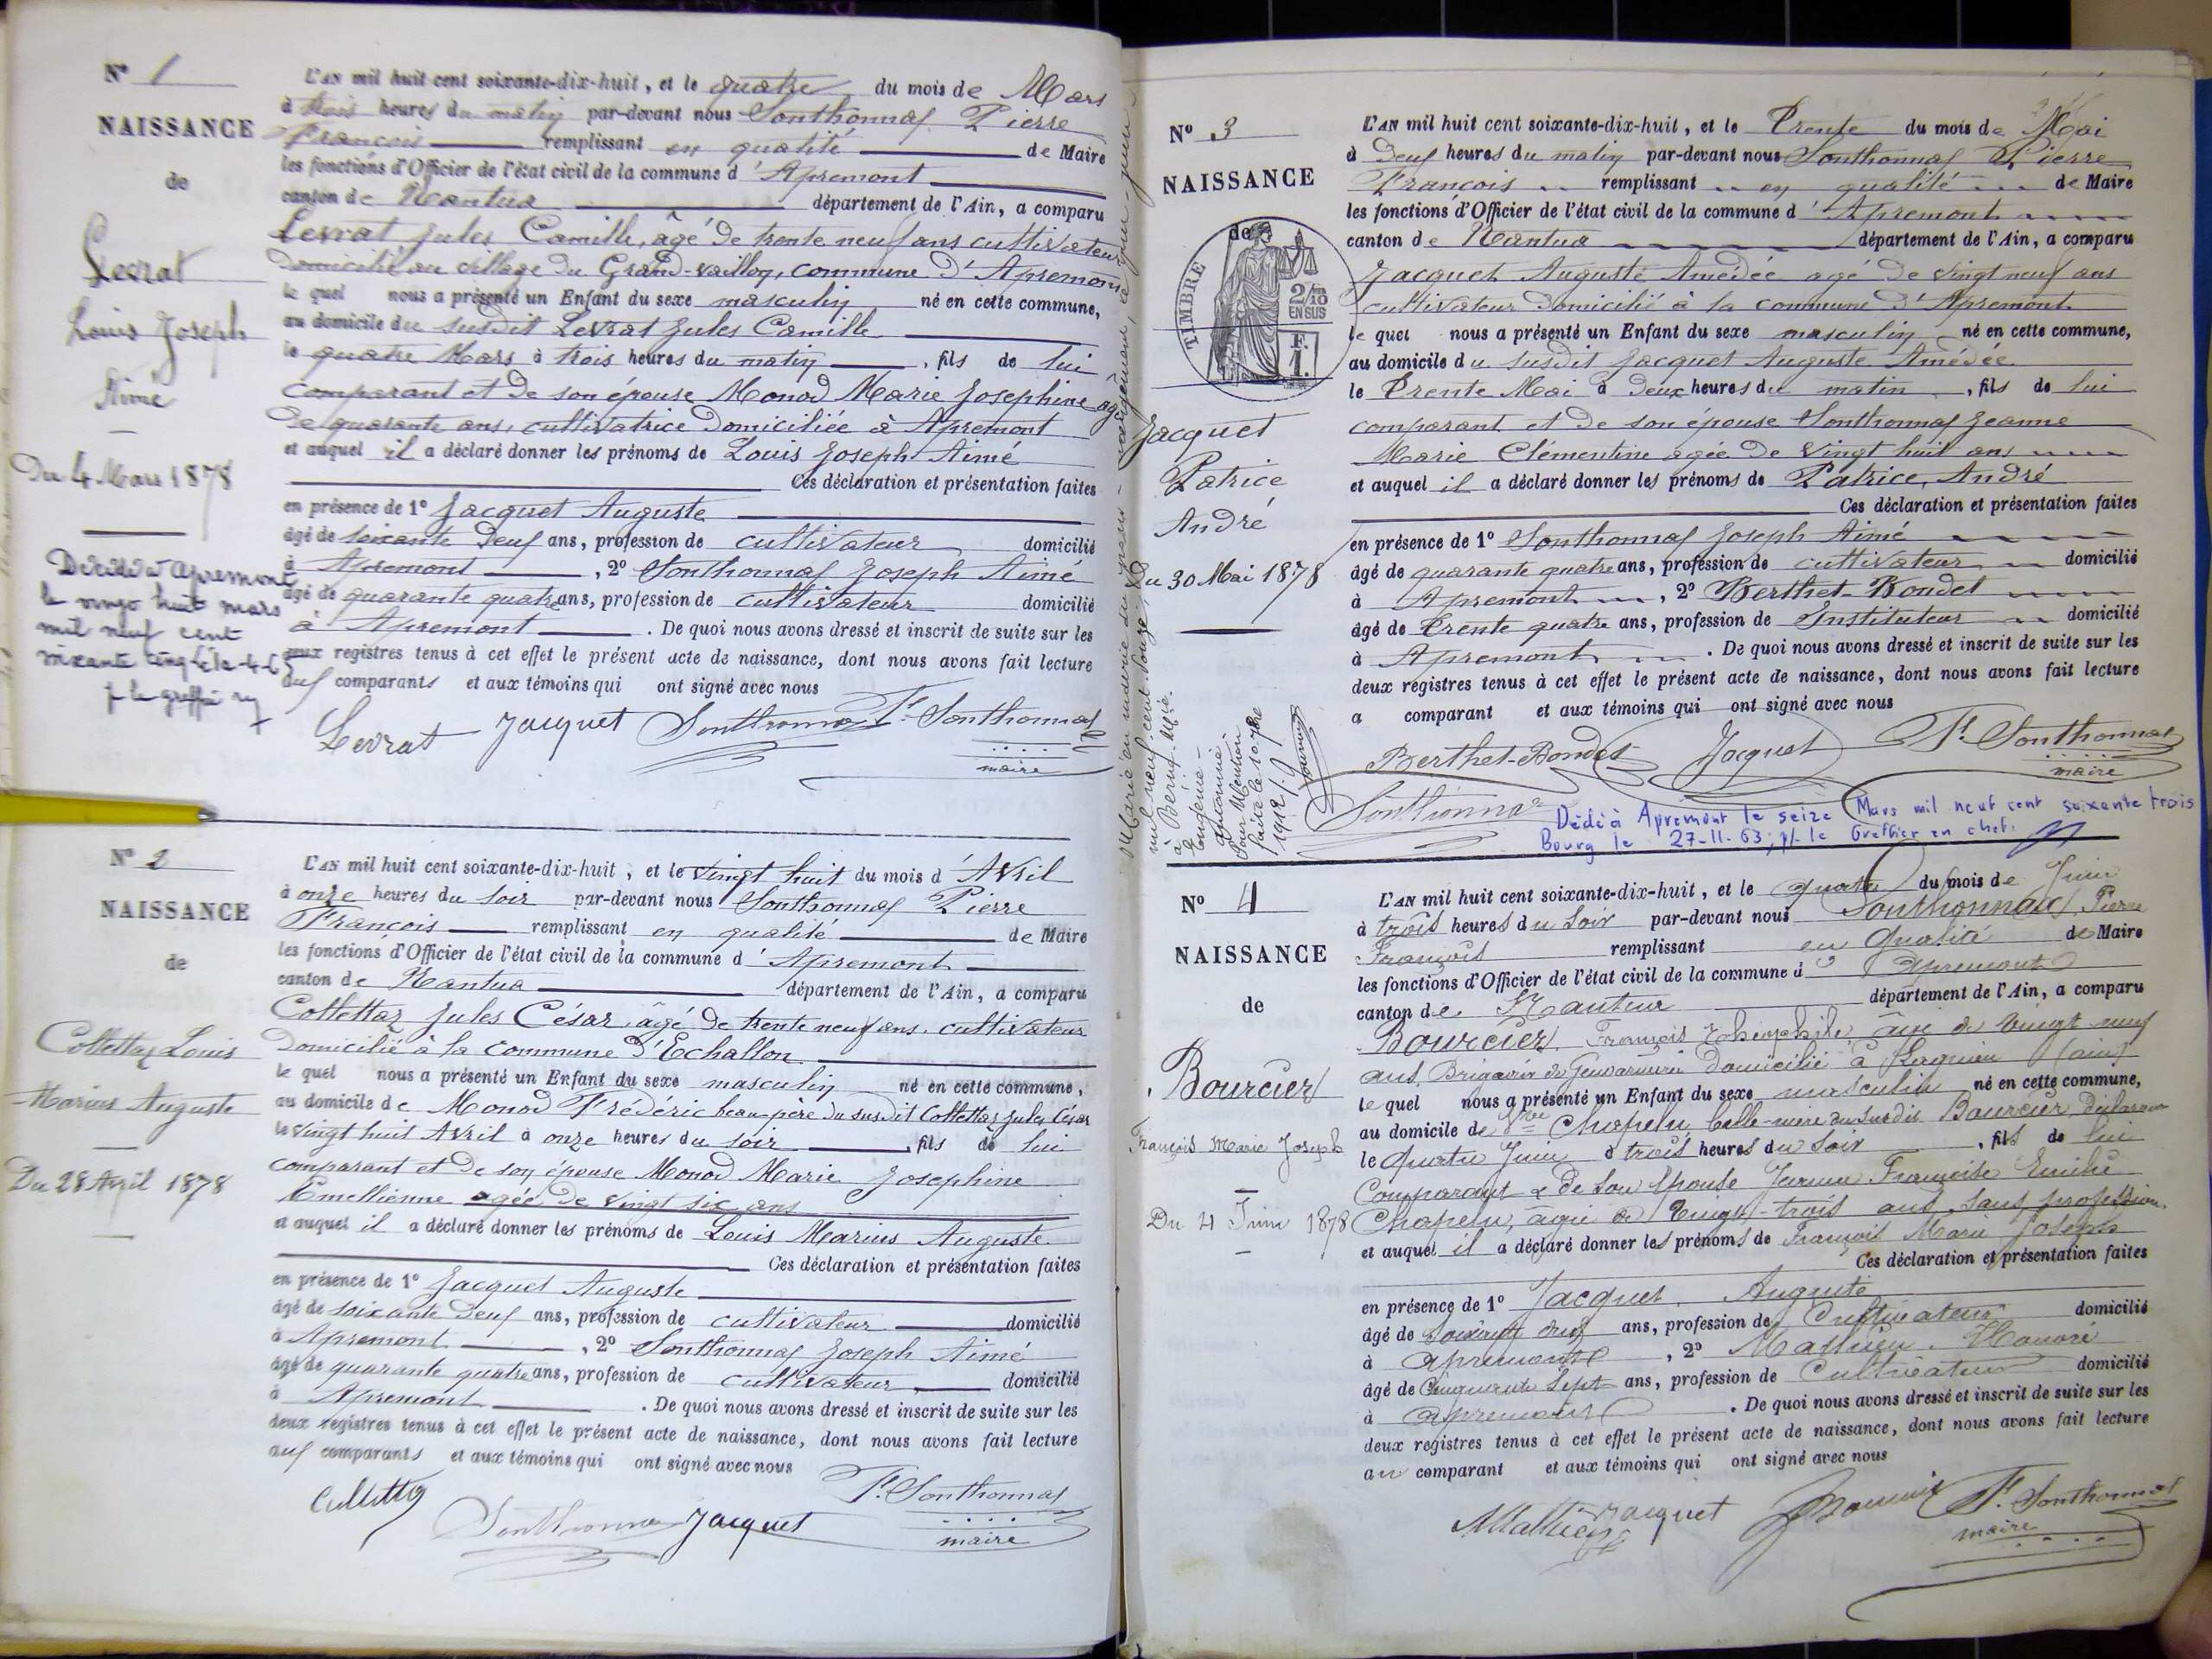 N° 1
NAISSANCE
de
Levrat
Louis Joseph
Aimé
Du 4 Mars 1878
Décédé à Apremont
le vingt huit mars
mil neuf cent
soixante cinq
L'AN mil huit cent soixante-dix-huit, et le quatre du mois de Mars
à trois heures du matin par-devant nous Sonthonnax Pierre
François remplissant en qualité de Maire
les fonctions d'Officier de l'état civil de la commune d'Apremont
canton de Nantua département de l'Ain, a comparu
Levrat Jules Camille, âgé de trente neuf ans cultivateur
domicilié au village du Grand-vaillon, commune d'Apremont
le quel nous a présenté un Enfant du sexe masculin né en cette commune,
au domicile du susdit Levrat Jules Camille
le quatre Mars à trois heures du matin, fils de lui
comparant et de son épouse Monod Marie Josephine âgée
de quarante ans, cultivatrice domiciliée à Apremont
et auquel il a déclaré donner les prénoms de Louis Joseph Aimé
Ces déclaration et présentation faites
en présence de 1° Jacquet Auguste
âgé de soixante deux ans, profession de cultivateur domicilié
à Apremont, 2° Sonthonnax Joseph Aimé
âgé de quarante quatre ans, profession de cultivateur domicilié
à Apremont. De quoi nous avons dressé et inscrit de suite sur les
deux registres tenus à cet effet le présent acte de naissance, dont nous avons fait lecture
aux comparants et aux témoins qui ont signé avec nous
Levrat Jacquet Sonthonnax P. Sonthonnax
maire
N° 2
NAISSANCE
de
Collettaz Louis
Marius Auguste
Du 28 Avril 1878
L'AN mil huit cent soixante-dix-huit, et le vingt huit du mois d'Avril
à onze heures du soir par-devant nous Sonthonnax Pierre
François remplissant en qualité de Maire
les fonctions d'Officier de l'état civil de la commune d'Apremont
canton de Nantua département de l'Ain, a comparu
Collettaz Jules César, âgé de trente neuf ans, cultivateur
domicilié à la commune d'Echallon
le quel nous a présenté un Enfant du sexe masculin né en cette commune,
au domicile de Monod Frédéric beau-père du susdit Collettaz Jules César
le vingt huit Avril à onze heures du soir, fils de lui
comparant et de son épouse Monod Marie Josephine
Emellienne agée de vingt six ans
et auquel il a déclaré donner les prénoms de Louis Marius Auguste
Ces déclaration et présentation faites
en présence de 1° Jacquet Auguste
âgé de soixante deux ans, profession de cultivateur domicilié
à Apremont, 2° Sonthonnax Joseph Aimé
âgé de quarante quatre ans, profession de cultivateur domicilié
à Apremont. De quoi nous avons dressé et inscrit de suite sur les
deux registres tenus à cet effet le présent acte de naissance, dont nous avons fait lecture
aux comparants et aux témoins qui ont signé avec nous
Sonthonnax Jacquet P. Sonthonnax
maire
N° 3
NAISSANCE
de
TIMBRE
2/10
EN SUS
F.
1.
Jacquet
Patrice
André
Du 30 Mai 1878
L'AN mil huit cent soixante-dix-huit, et le Trente du mois de Mai
à deux heures du matin par-devant nous Sonthonnax Pierre
François remplissant en qualité de Maire
les fonctions d'Officier de l'état civil de la commune d'Apremont
canton de Nantua département de l'Ain, a comparu
Jacquet Auguste Amédée agé de vingt neuf ans
cultivateur domicilié à la commune d'Apremont
le quel nous a présenté un Enfant du sexe masculin né en cette commune,
au domicile du susdit Jacquet Auguste Amédée
le Trente Mai à deux heures du matin, fils de lui
comparant et de son épouse Sonthonnax Jeanne
Marie Clémentine agée de vingt huit ans
et auquel il a déclaré donner les prénoms de Patrice, André
Ces déclaration et présentation faites
en présence de 1° Sonthonnax Joseph Aimé
âgé de quarante quatre ans, profession de cultivateur domicilié
à Apremont, 2° Berthet-Bondet
âgé de Trente quatre ans, profession de Instituteur domicilié
à Apremont. De quoi nous avons dressé et inscrit de suite sur les
deux registres tenus à cet effet le présent acte de naissance, dont nous avons fait lecture
a comparant et aux témoins qui ont signé avec nous
Berthet-Bondet Jacquet P. Sonthonnax
maire
Sonthonnax
Dédé à Apremont le seize Mars mil neuf cent soixante trois
Bourg le 27-11-63; p/ le Greffier en chef:
N° 4
NAISSANCE
de
Bourcier
François Marie Joseph
Du 4 Juin 1878
L'AN mil huit cent soixante-dix-huit, et le quatre du mois de Juin
à trois heures du soir par-devant nous Sonthonnax Pierre
François remplissant en qualité de Maire
les fonctions d'Officier de l'état civil de la commune d'Apremont
canton de Nantua département de l'Ain, a comparu
Bourcier François Théophile âgé de vingt neuf
ans, Brigadier de Gendarmerie domicilié à (ain)
le quel nous a présenté un Enfant du sexe masculin né en cette commune,
au domicile de Chapelu belle-mère du susdit Bourcier
le quatre Juin à trois heures du soir, fils de lui
Comparant & de son épouse Jeanne Françoise Emilie
Chapelu, âgée de vingt-trois ans, sans profession
et auquel il a déclaré donner les prénoms de François Marie Joseph
Ces déclaration et présentation faites
en présence de 1° Jacquet Auguste
âgé de soixante deux ans, profession de Cultivateur domicilié
à apremont, 2° Mathieu Honoré
âgé de Cinquante sept ans, profession de Cultivateur domicilié
à apremont. De quoi nous avons dressé et inscrit de suite sur les
deux registres tenus à cet effet le présent acte de naissance, dont nous avons fait lecture
au comparant et aux témoins qui ont signé avec nous
Mathieu Jacquet Bourcier P. Sonthonnax
maire